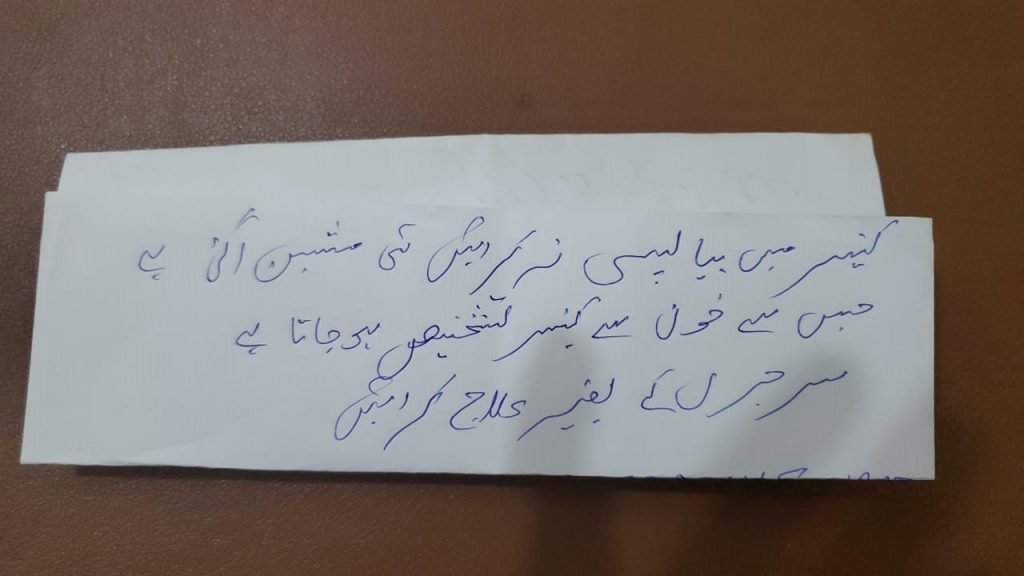 کینسر میں بیاپسی نہ کروائیں نئی مشین آگئی ہے
جس سے خون سے کینسر تشخیص ہو جاتا ہے
سرجری کے بغیر علاج کروائیں